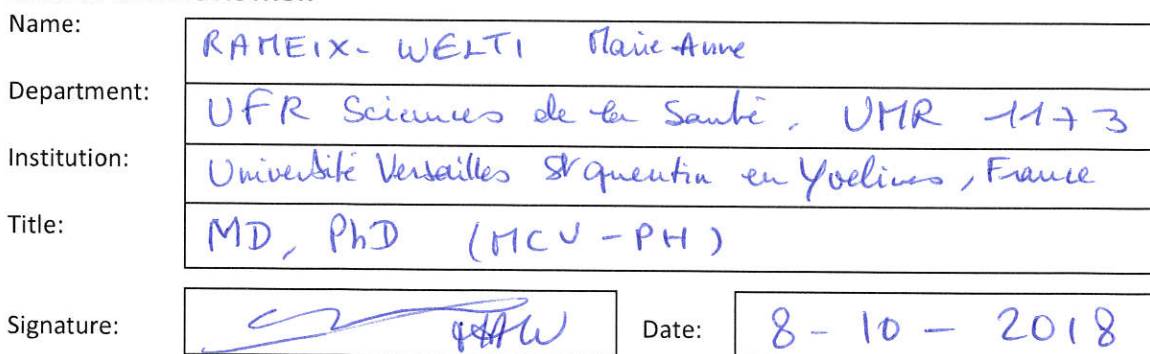 Name: RAMEIX-WELTI Marie-Anne
Department: UFR Sciences de la Santé, UMR 1173
Institution: Université Versailles St Quentin en Yvelines, France
Title: MD, PhD (MCU-PH)
Signature: Date: 8-10-2018